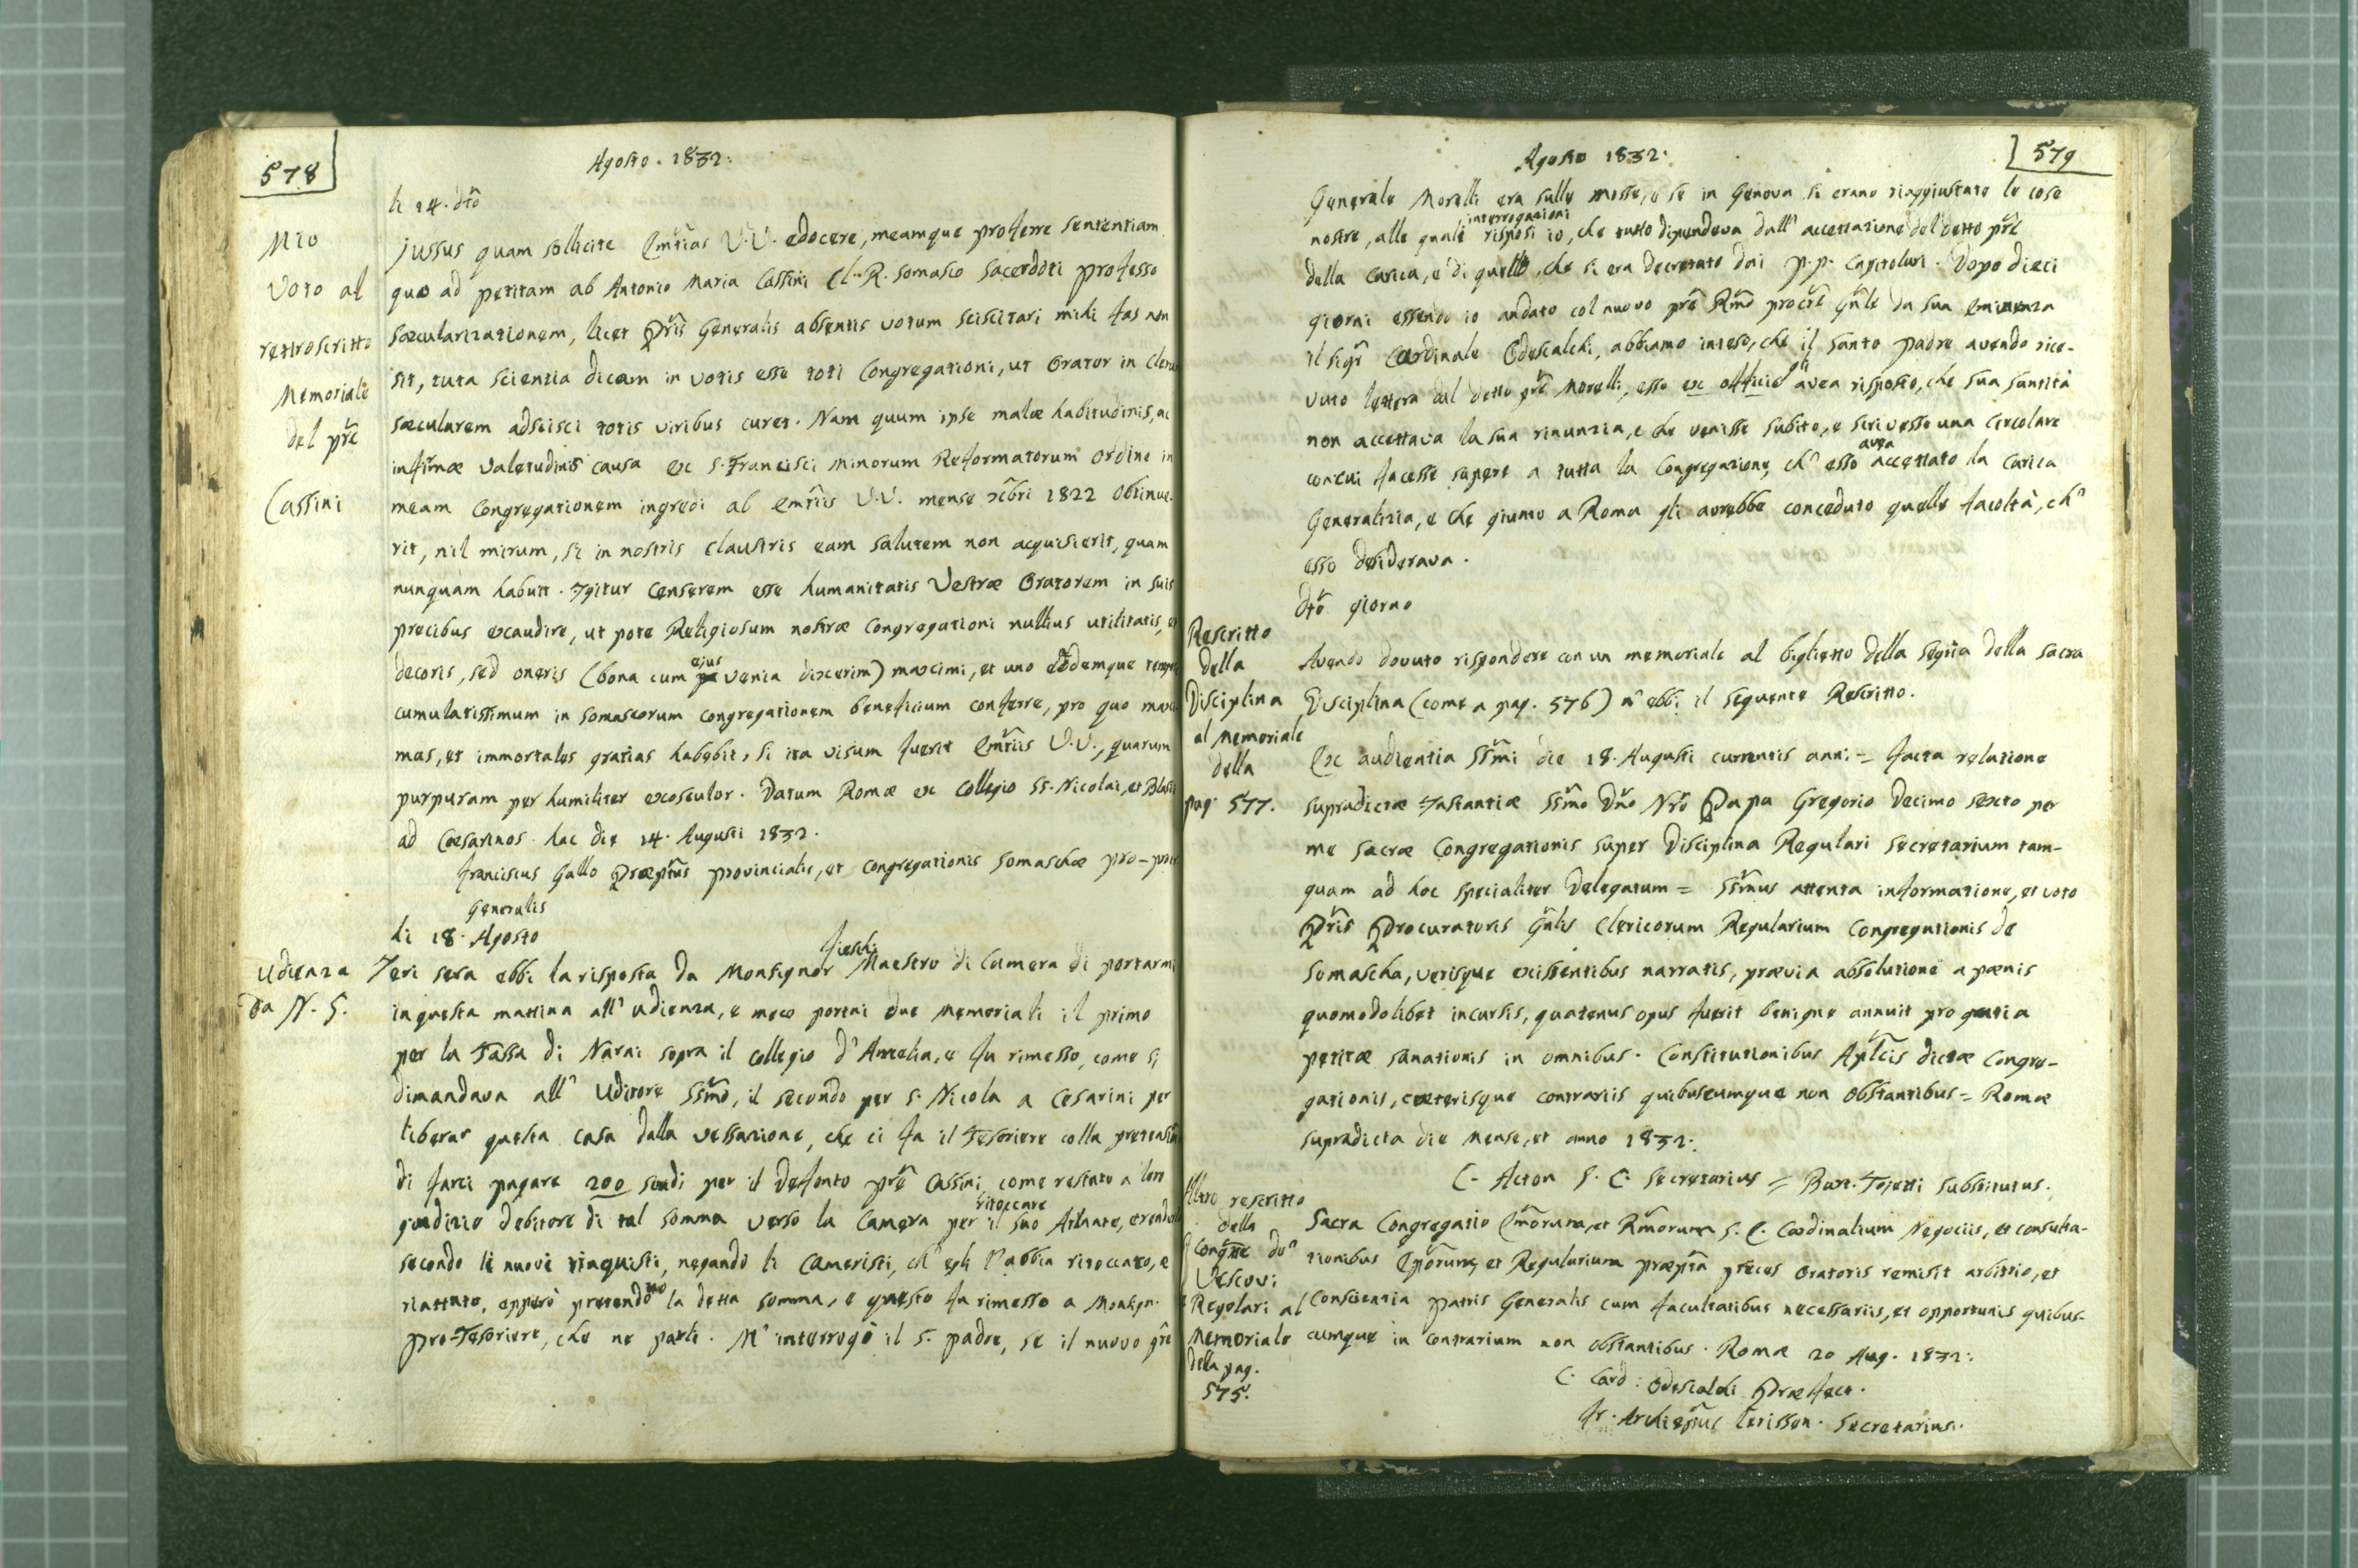 578
Agosto. 1832.
li 14. dto
Mio
Voto al
retroscritto
Memoriale
del pre
Cassini
Jussus quam sollicite Emtias V.V. edocere, meamque proferre sententiam
quo ad petitam ab Antonio Maria Cassini Cl. R. Somasco sacerdoti professo
sæcularizationem, licet Pris Generalis absentis votum sciscitari mihi fas non
sit, tuta scientia dicam in votis esse toti Congregationi, ut Orator in Clerum
sæcularem adscisci totis viribus curet. Nam quum ipse malæ habitudinis, ac
infirmæ valetudinis causa ex S. Francisci Minorum Reformatorum Ordine in
meam Congregationem ingredi ab Emtiis V.V. mense xbri 1822 obtinue-
rit, nil mirum, si in nostris claustris eam salutem non acquisierit, quam
nunquam habuit. Igitur censerem esse humanitatis Vestræ Oratorem in suis
precibus exaudire, ut pote Religiosum nostræ Congregationi nullius utilitatis, et
decoris, sed oneris (bona cum ejus venia dixerim) maximi, et uno eodemque tempore
cumulatissimum in Somascorum congregationem beneficium conferre, pro quo maxi-
mas, et immortales gratias habebit, si ita visum fuerit Emtiis V.V., quarum
purpuram per humiliter exosculor. Datum Romæ ex Collegio SS. Nicolai, et Blasii
ad Cæsarinos hac die 14. Augusti 1832.
Franciscus Gallo Præptus provincialis, et Congregationis Somaschæ pro-procr
Generalis
li 18. Agosto
Udienza
da N. S.
Ieri sera ebbi la risposta da Monsignor Fieschi Maestro di Camera di portarmi
in questa mattina all' udienza, e meco portai due memoriali il primo
per la Tassa di Narni sopra il collegio d' Amelia, e fu rimesso, come si
dimandava all' Uditore SSmo, il secondo per S. Nicola a Cesarini per
liberar questa casa dalla vessazione, che ci fa il Tesoriere colla pretensione
di farci pagare 200 scudi per il defonto pre Cassini come restato a loro
giudizio debitore di tal somma verso la Camera per ritoccare il suo Atlante,
secondo li nuovi rinquisti, negando li Cameristi, ch' egli l' abbia ritoccato, e
riattato, epperò pretendono la detta somma, e questo fu rimesso a Monsign.
pro-Tesoriere, che ne parli. M' interrogò il S. padre, se il nuovo pre
579
Agosto 1832.
Generale Morelli era sulle mosse, e se in Genova si erano riaggiustate le cose
nostre, alle quali interrogazioni risposi io, che tutto dipendeva dall' accettazione del detto pre
della carica, e di quello, che si era decretato dai p.p. Capitolari. Dopo dieci
giorni essendo io andato col nuovo pre Rmo procre Gnle da sua eminenza
il sigr Cardinale Odescalchi, abbiamo inteso, che il Santo padre avendo rice-
vuto lettera dal detto pre Morelli, esso ex officio gli avea risposto, che sua santità
non accettava la sua rinunzia, e che venisse subito, e scrivesse una Circolare
con cui facesse sapere a tutta la Congregazione, ch' esso avea accettato la carica
Generalizia, e che giunto a Roma gli avrebbe conceduto quelle facoltà, ch'
esso desiderava.
Dto giorno
Rescritto
della
Disciplina
al Memoriale
della
pag. 577.
Avendo dovuto rispondere con un memoriale al biglietto della Segria della Sacra
Disciplina (come a pag. 576) n' ebbi il seguente Rescritto.
Ex audientia SSmi die 18. Augusti currentis anni = facta relatione
supradictæ Instantiæ SSmo Dno Nro Papa Gregorio Decimo sexto per
me Sacræ Congregationis super Disciplina Regulari Secretarium tam-
quam ad hoc specialiter Delegatum = SSmus attenta informatione, et voto
Pris Procuratoris Gnlis Clericorum Regularium Congregationis de
Somascha, verisque existentibus narratis, prævia absolutione a pænis
quomodolibet incursis, quatenus opus fuerit benigne annuit pro gratia
petitæ sanationis in omnibus. Constitutionibus Aplcis dictæ Congre-
gationis, cæterisque contrariis quibuscumque non obstantibus = Romæ
supradicta die mense, et anno 1832.
C. Acton S. C. Secretarius = Bart. Tojetti Substitutus.
Altro rescritto
della
Congne de'
Vescovi
e Regolari al
Memoriale
della pag.
575.
Sacra Congregatio Emorum, et Rmorum S. C. Cardinalium Negociis, et consulta-
tionibus Eporum, et Regularium præpta preces Oratoris remisit arbitrio, et
conscientia patris Generalis cum facultatibus necessariis, et opportunis quibus-
cumque in contrarium non obstantibus. Romæ 20 Aug. 1832.
C. Card: Odescalchi Præfect.
Jr. Archiepus Secretarius.